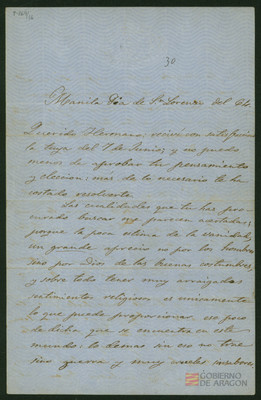 30
Manila Dia de Sn Lorenzo del 64.
Querido Hermano, recivi con satisfaccion
la tuya del 7 de Junio, y no puedo
menos de aprobar tu pensamiento
y eleccion: mas de lo necesario te ha
costado resolverte.
Las cualidades que tu has pro
curado buscar me parecen acertadas;
porque la poca estima de la vanidad,
un grande aprecio no por los hombres
sino por Dios de las buenas costumbres,
y sobre todo tener muy arraigados
sentimientos religiosos es unicamente
lo que puede proporcionar un poco
de dicha que se encuentra en este
mundo: lo demas sin eso no trae
sino guerra y muy crueles
GOBIERNO
DE ARAGON